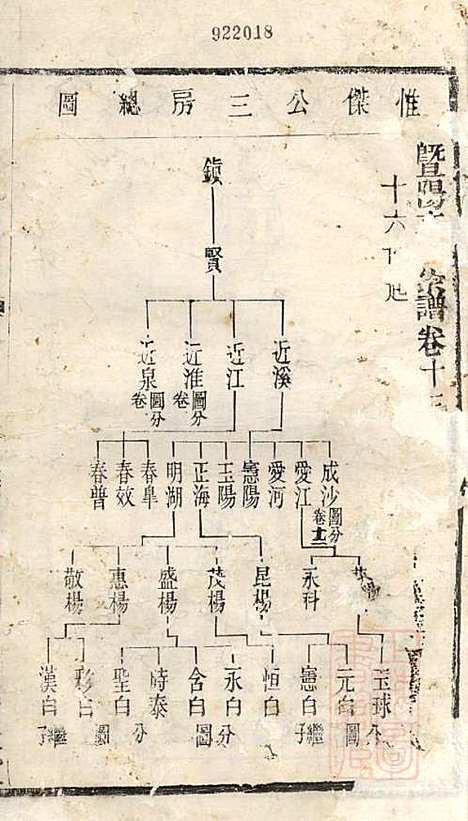 922018
惟傑公三房總圖
暨陽
宗譜卷十
十六
鎮
賢
近溪
近江
近淮 圖分卷
近泉 圖分卷
成沙 圖分卷十二
愛江
愛河
憲陽
玉陽
正海
明湖
春阜
春效
春普
永科
昆楊
茂楊
盛楊
惠楊
敬楊
玉球
元白
憲白 繼子
恒白
永白
含白
時泰
聖白
彩白
漢白 繼子
分圖
分圖
分圖